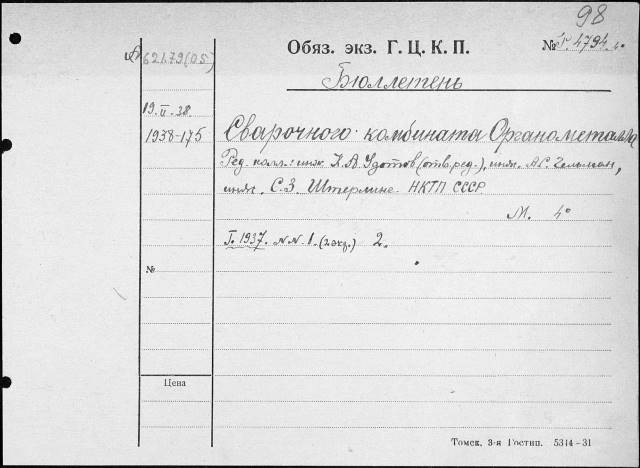 98
Обяз. экз. Г. Ц. К. П.
№ Г. 4794. 4°
621.79(05)
Бюллетень
19.II-38.
1938-175
Сварочного комбината Органометалла
Ред. колл.: инж. К. А. Удотов (отв. ред.), инж. А.С. Гельман,
инж. С. З. Штерлинг. НКТП СССР
М. 4°
I. 1937. NN. 1. (2 экз.) 2.
№
Цена
Томск, 3-я Гостип. 5314-31